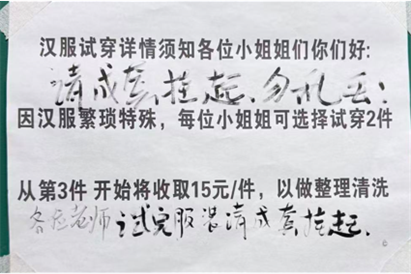 汉服试穿详情须知各位小姐姐们你们好:
请成套挂起、勿乱丢!
因汉服繁琐特殊，每位小姐姐可选择试穿2件
从第3件 开始将收取15元/件，以做整理清洗
各位老师 试完服装请成套挂起、